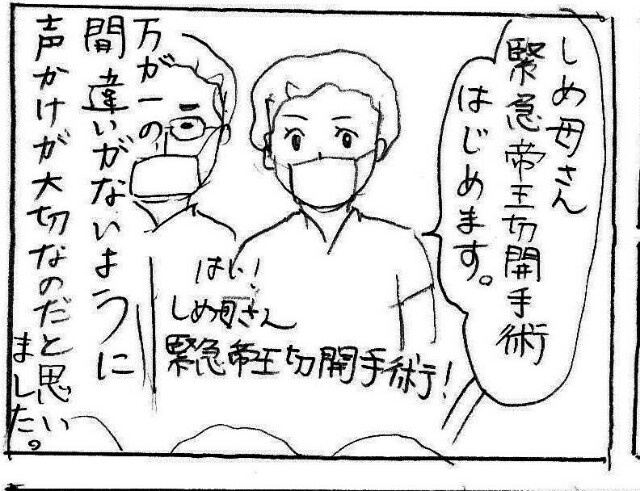 しめ母さん
緊急帝王切開手術
はじめます。
はい!
しめ母さん
緊急帝王切開手術!
万が一の
間違いがないように
声かけが大切なのだと思い
ました。